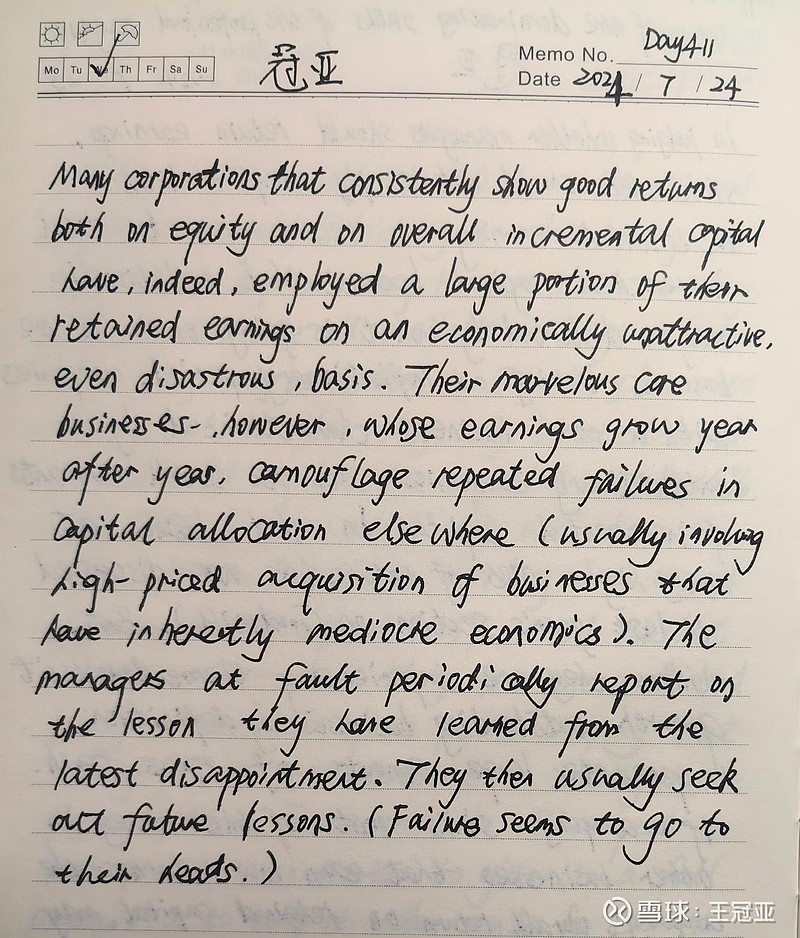 Mo Tu We Th Fr Sa Su
冠亚
Memo No. Day411
Date 2024 / 7 / 24
Many corporations that consistently show good returns
both on equity and on overall incremental capital
have, indeed, employed a large portion of their
retained earnings on an economically unattractive,
even disastrous, basis. Their marvelous core
businesses, however, whose earnings grow year
after year, camouflage repeated failures in
capital allocation elsewhere (usually involving
high-priced acquisition of businesses that
have inherently mediocre economics). The
managers at fault periodically report on
the lesson they have learned from the
latest disappointment. They then usually seek
out future lessons. (Failure seems to go to
their heads.)
雪球：王冠亚